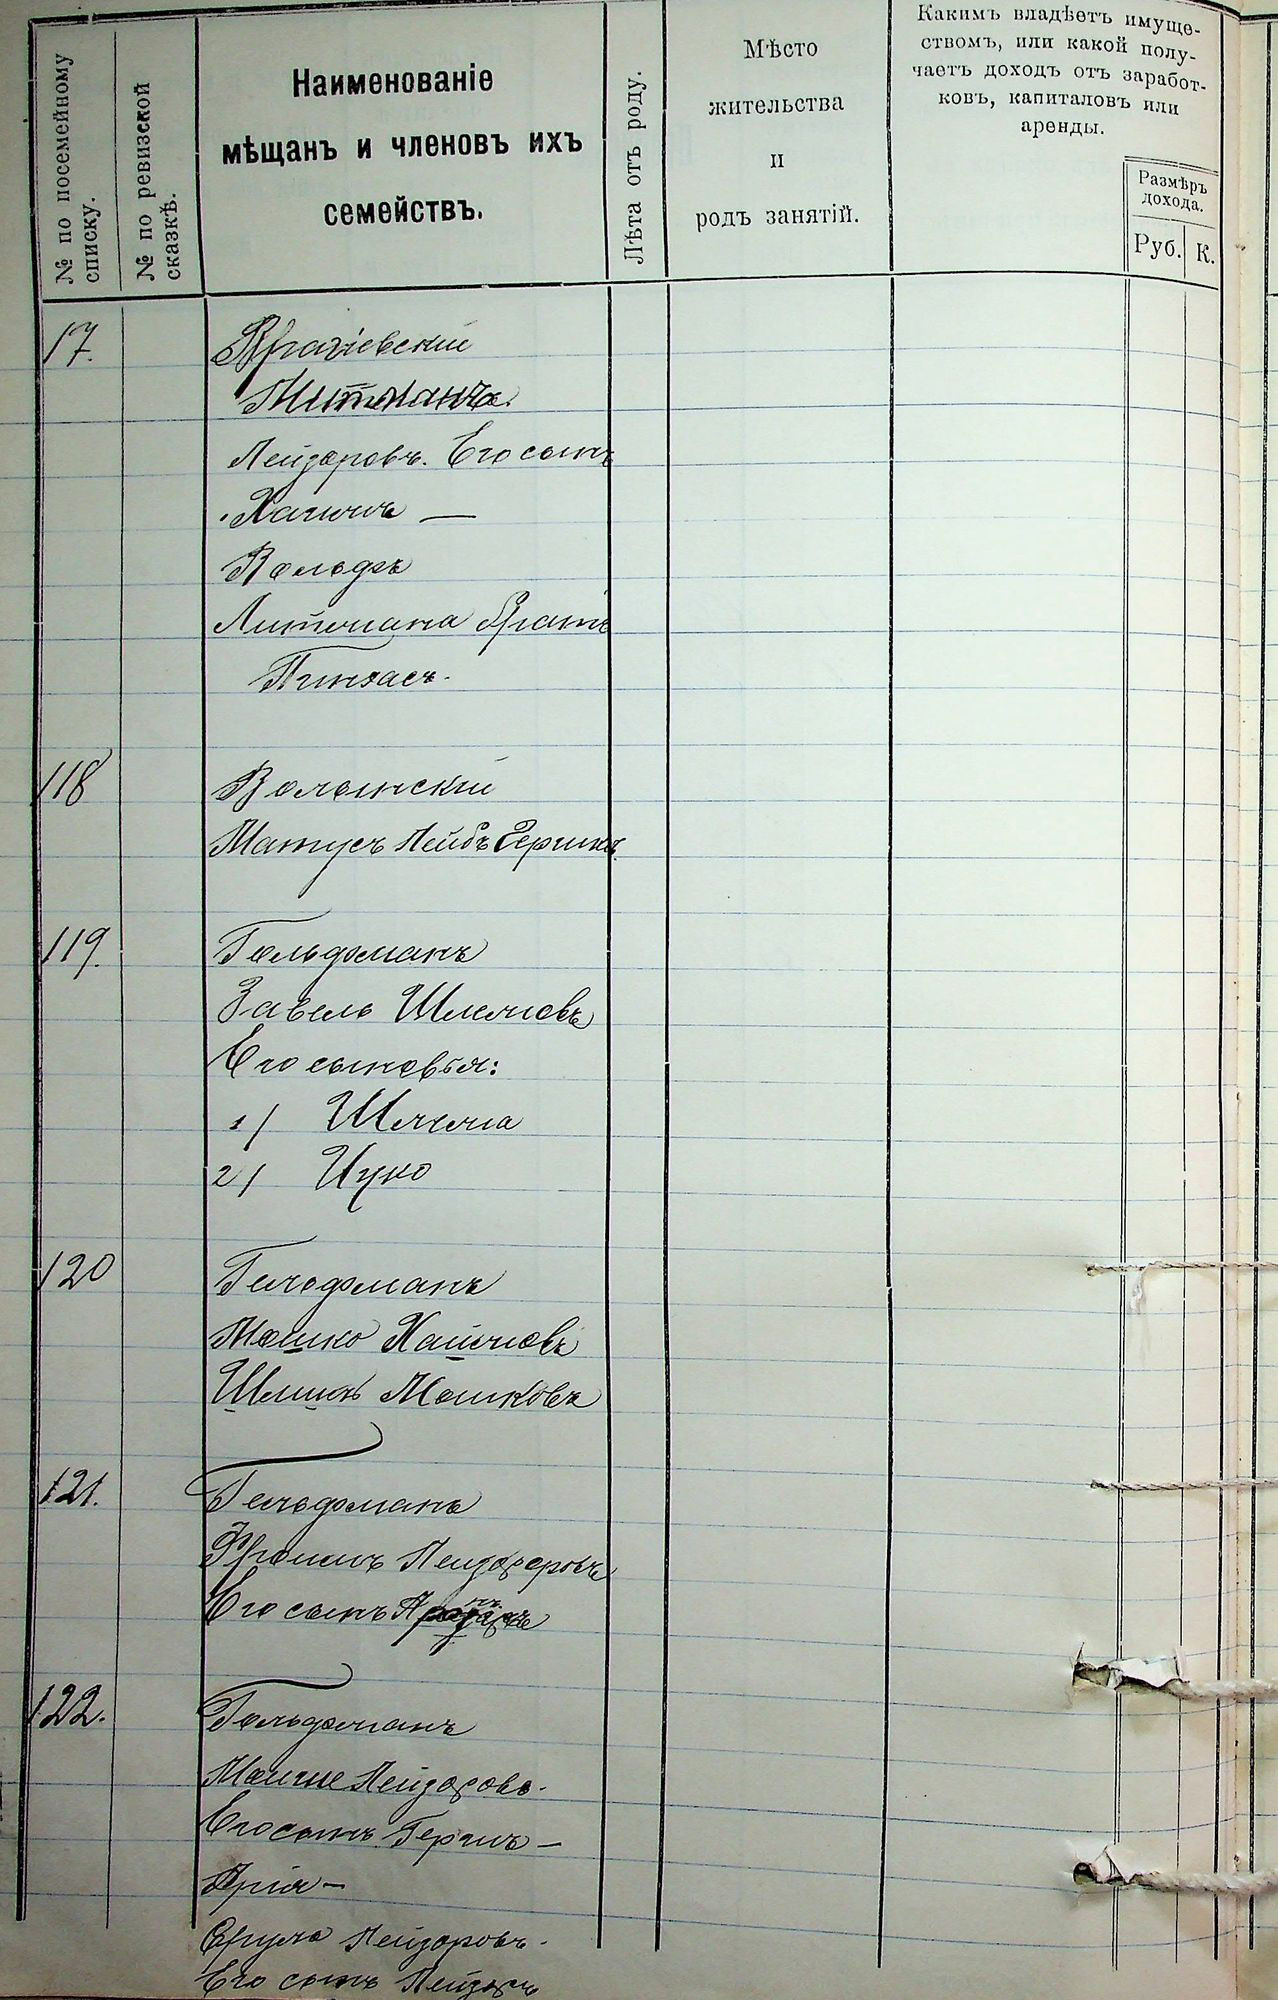 № по посемейному
списку.
№ по ревизской
сказкѣ.
Наименованіе
мѣщанъ и членовъ ихъ
семействъ.
Лѣта отъ роду.
Мѣсто
жительства
и
родъ занятій.
Какимъ владѣетъ имуще-
ствомъ, или какой полу-
чаетъ доходъ отъ заработ-
ковъ, капиталовъ или
аренды.
Размѣръ
дохода.
Руб.
К.
17.
Лейзеровъ. Его сынъ
Хаимъ —
Вольфъ
Литмана братъ
Пинхасъ.
118
Волынскій
Матусъ Лейбъ Гершк.
119.
Гольдманъ
Завель Шлемовъ
Его сыновья:
1) Шлема
2) Ицко
120
Гельфманъ
Мошко Хаимовъ
Шлиомъ Мошковъ
121.
Гельфманъ
Фроимъ Лейзеровъ
Его сынъ
122.
Гольфманъ
Мошне Лейзеровъ.
Его сынъ Гершъ —
Арія —
Сруль Лейзоровъ.
Его сынъ Лейзеръ